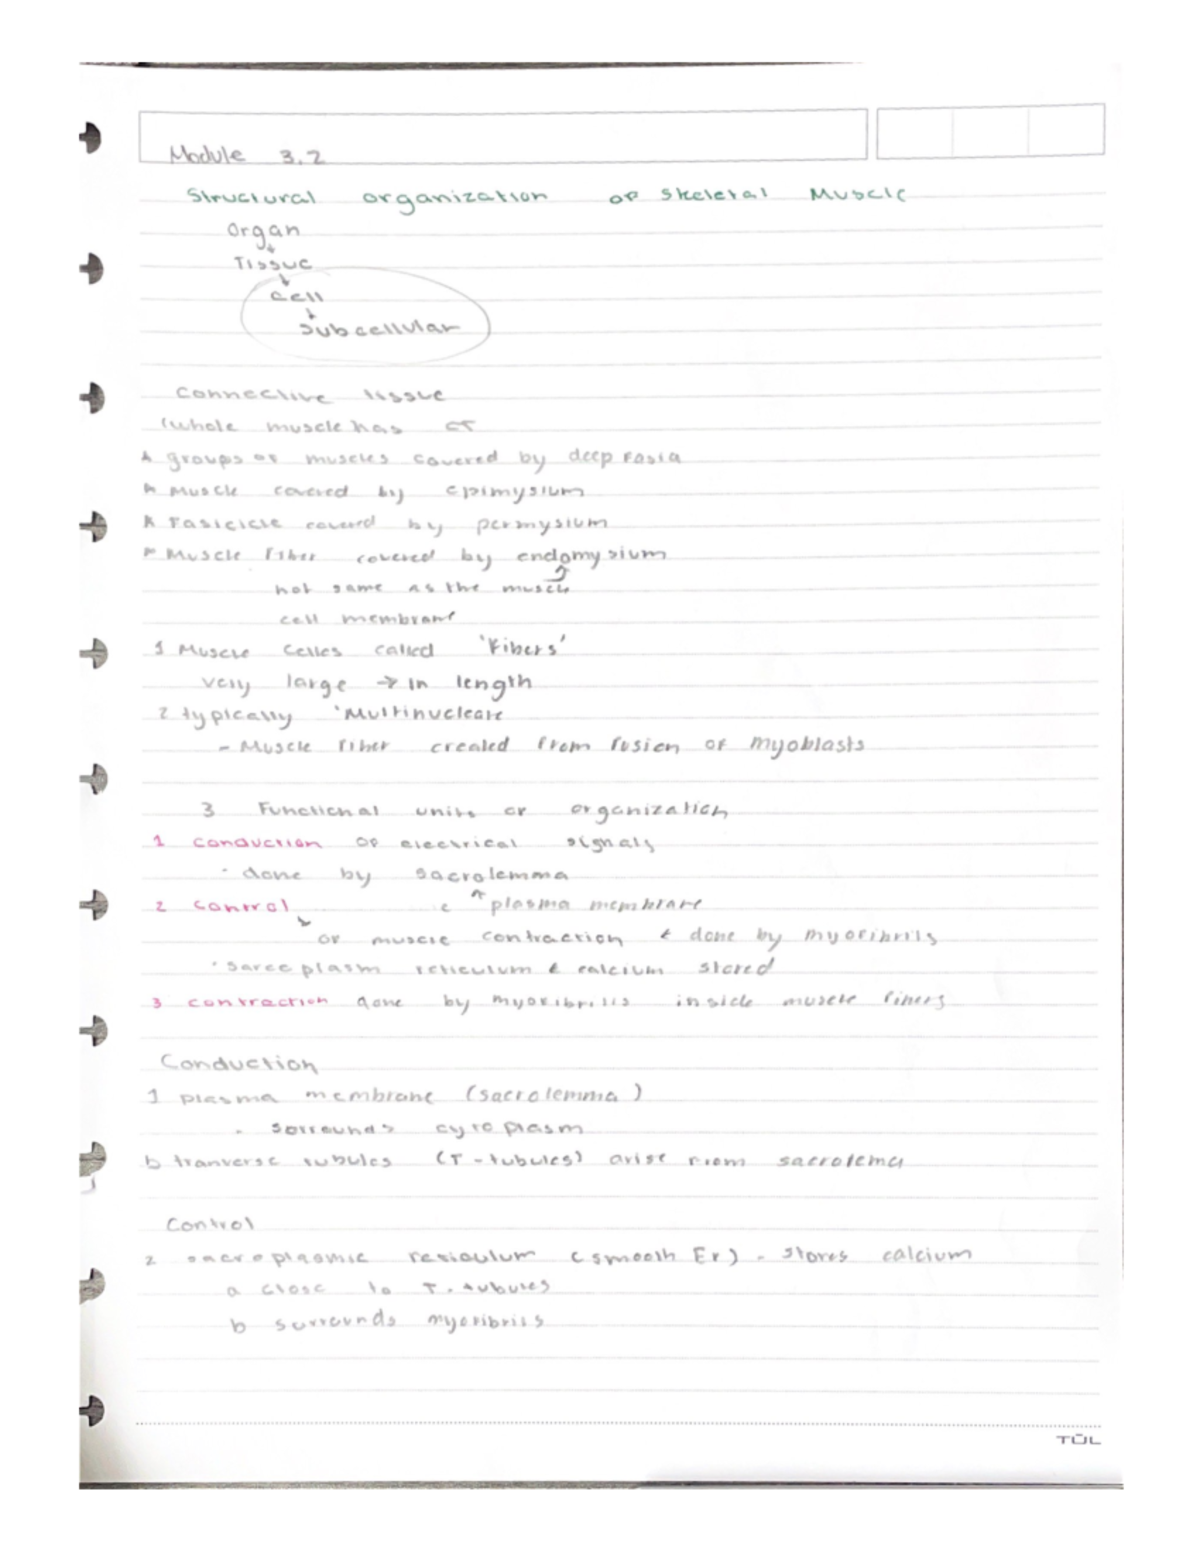 Module 3.2
Structural organization of Skeletal Muscle
Organ
Tissue
Cell
Subcellular
Connective tissue
(whole muscle has CT
groups of muscles covered by deep Fasia
Muscle covered by epimysium
Fasicicle covered by permysium
Muscle fiber covered by endomysium
not same as the muscle
cell membrane
1 Muscle Celles called 'Fibers'
very large → in length
2 typically 'Multinucleare
- Muscle fiber created from fusion of myoblasts
3 Functional units of organization
1 conduction of electrical signals
- done by sacrolemma
2 control plasma membrane
of muscle contraction & done by myofibrils
reticulum & calcium stored
3 contraction done by myofibrilis inside muscle fibers
Conduction
1 plasma membrane (sacrolemma)
- sorrounds cytoplasm
b tranverse tubules (T-tubules) arise from sacrolema
Control
2 sacroplasmic reticulum (smooth Er) - stores calcium
a close to T-tubules
b surrounds myofibrils
TUL